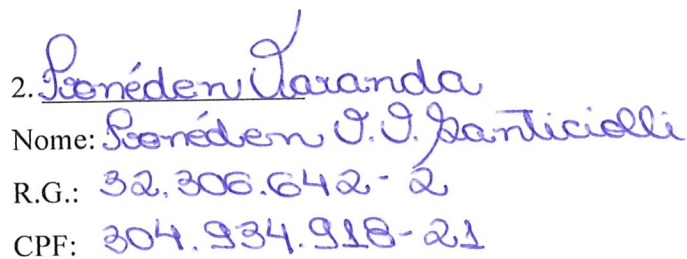 2. Leonéden Varanda
Nome: Leonéden V. V. Santiciolli
R.G.: 32.306.642-2
CPF: 304.934.918-21